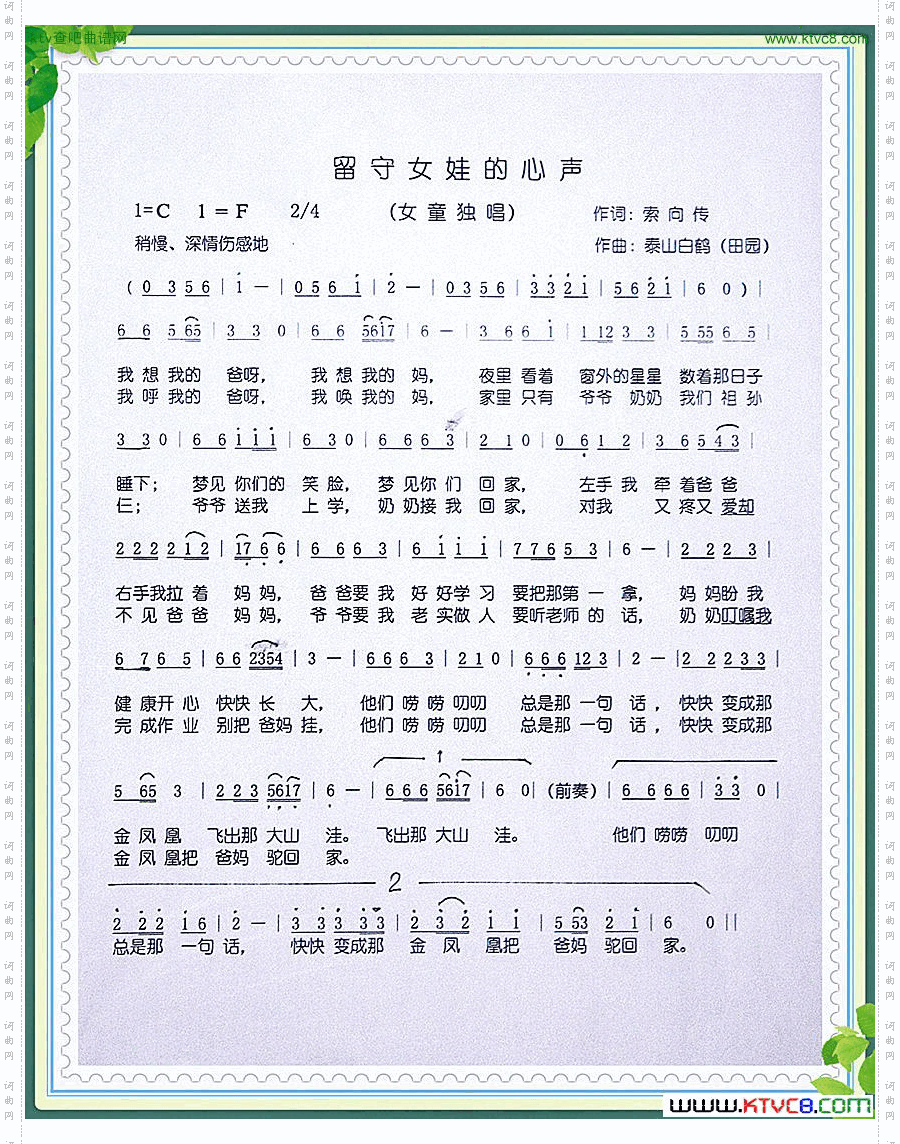 ktv查吧曲谱网
www.ktvc8.com
留守女娃的心声
1=C 1=F 2/4 (女童独唱) 作词：索向传
稍慢、深情伤感地 作曲：泰山白鹤（田园）
( 0 3 5 6 | i — | 0 5 6 i | 2̇ — | 0 3 5 6 | 3̇ 3̇ 2̇ i | 5 6 2̇ i | 6 0 ) |
6 6 5 65 | 3 3 0 | 6 6 56i7 | 6 — | 3 6 6 i | 1 12 3 3 | 5 55 6 5 |
我想我的 爸呀， 我想我的 妈， 夜里看着 窗外的星星 数着那日子
我呼我的 爸呀， 我唤我的 妈， 家里只有 爷爷 奶奶 我们祖孙
3 3 0 | 6 6 i i i | 6 3 0 | 6 6 6 3 | 2 1 0 | 0 6̣ 1 2 | 3 6 5 43 |
睡下； 梦见你们的 笑脸， 梦见你们 回家， 左手我 牵着爸爸
仨； 爷爷送我 上学， 奶奶接我 回家， 对我 又疼又爱却
2 2 2 2 12 | 17̣ 6̣ 6̣ | 6 6 6 3 | 6 i i i | 7 7 6 5 3 | 6 — | 2 2 2 3 |
右手我拉着 妈妈， 爸爸要我 好好学习 要把那第一 拿， 妈妈盼我
不见爸爸 妈妈， 爷爷要我 老实做人 要听老师的 话， 奶奶叮嘱我
6 7 6 5 | 6 6 2354 | 3 — | 6 6 6 3 | 2 1 0 | 6̣ 6̣ 6̣ 12 3 | 2 — | 2 2 2 3 3 |
健康开心 快快长 大， 他们唠唠叨叨 总是那一句 话， 快快变成那
完成作业 别把爸妈挂， 他们唠唠叨叨 总是那一句 话， 快快变成那
1
5 65 3 | 2 2 3 5̣6̣17̣ | 6 — | 6 6 6 56i7 | 6 0 | (前奏) | 6 6 6 6 | 3̇ 3̇ 0 |
金凤凰 飞出那大山 洼。 飞出那大山 洼。 他们唠唠 叨叨
金凤凰把 爸妈驼回 家。
2
2̇ 2̇ 2̇ i 6 | 2̇ — | 3̇ 3̇ 3̇ 3̇ | 2̇ 3̇ 2̇ i i | 5 53 2̇ i | 6 0 ||
总是那 一句话， 快快变成那 金凤 凰把 爸妈驼回 家。
www.KTVC8.com
词曲网